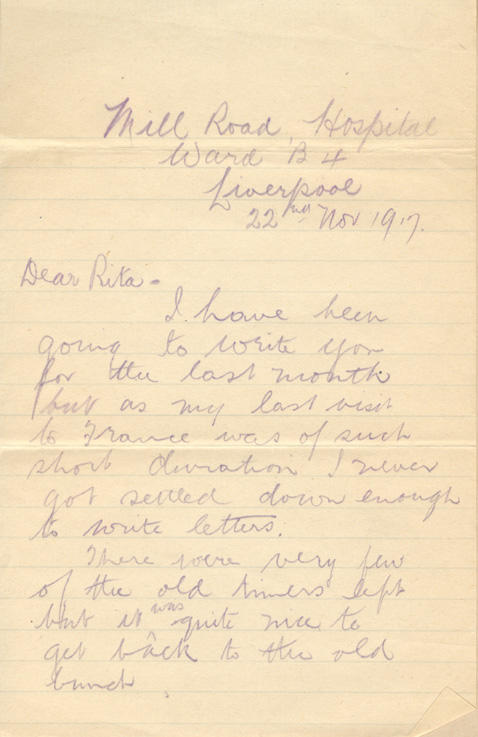 Mill Road, Hospital
Ward B 4
Liverpool
22nd Nov 1917.
Dear Rita-
I have been
going to write you
for the last month
but as my last visit
to France was of such
short duration I never
got settled down enough
to write letters.
There were very few
of the old timers left
but it was quite nice to
get back to the old
bunch